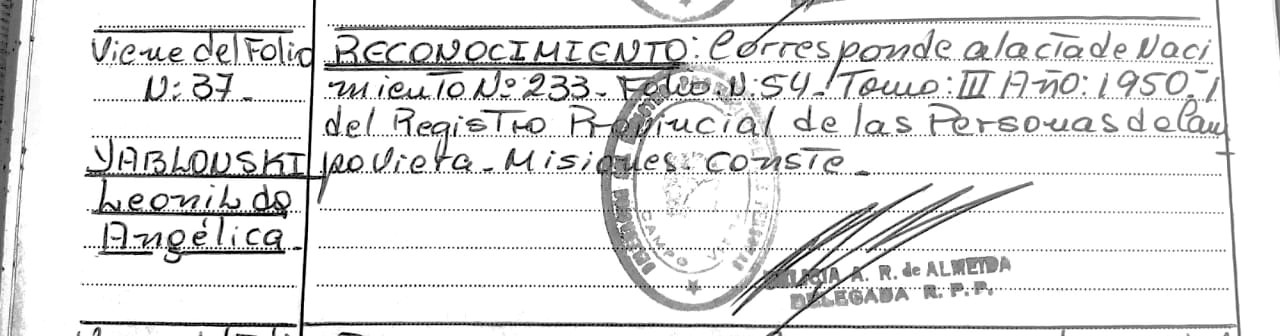 Viene del Folio
N: 37.-
YABLONSKI
Leonilda
Angélica.
RECONOCIMIENTO: Corresponde al acta de Naci
miento Nº 233.- Folio. N: 54.- Tomo: III Año: 1950.-
del Registro Provincial de las Personas de Cam
po Viera.- Misiones. Conste.-
CAMPO VIERA
A. R. de ALMEIDA
DELEGADA R. P. P.